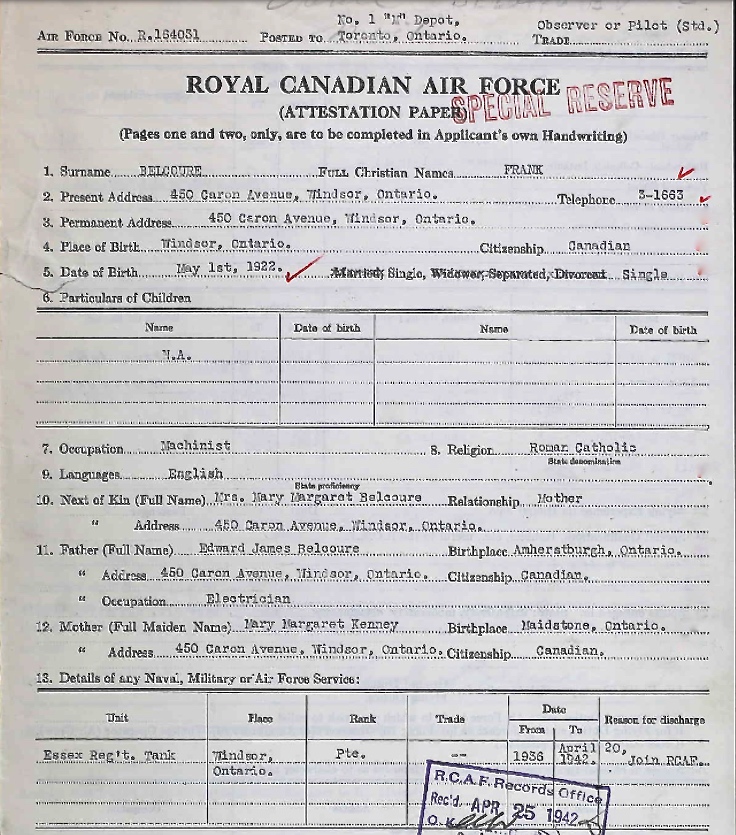 No. 1 "M" Depot,
Air Force No. R.164031 Posted to Toronto, Ontario. Observer or Pilot (Std.) Trade
ROYAL CANADIAN AIR FORCE
SPECIAL RESERVE
(ATTESTATION PAPER)
(Pages one and two, only, are to be completed in Applicant's own Handwriting)
1. Surname BELCOURE Full Christian Names FRANK
2. Present Address 450 Caron Avenue, Windsor, Ontario. Telephone 3-1663
3. Permanent Address 450 Caron Avenue, Windsor, Ontario.
4. Place of Birth Windsor, Ontario. Citizenship Canadian
5. Date of Birth May 1st, 1922. Married, Single, Widower, Separated, Divorced Single
6. Particulars of Children
Name Date of birth Name Date of birth
N.A.
7. Occupation Machinist 8. Religion Roman Catholic
State denomination
9. Languages English
State proficiency
10. Next of Kin (Full Name) Mrs. Mary Margaret Belcoure Relationship Mother
" Address 450 Caron Avenue, Windsor, Ontario.
11. Father (Full Name) Edward James Belcoure Birthplace Amherstburgh, Ontario.
" Address 450 Caron Avenue, Windsor, Ontario. Citizenship Canadian.
" Occupation Electrician
12. Mother (Full Maiden Name) Mary Margaret Kenney Birthplace Maidstone, Ontario.
" Address 450 Caron Avenue, Windsor, Ontario. Citizenship Canadian.
13. Details of any Naval, Military or Air Force Service:
Unit Place Rank Trade Date Reason for discharge
From To
Essex Reg't. Tank Windsor, Pte. -- 1936 April 20,
Ontario. 1942. Join RCAF.
R.C.A.F. Records Office
Rec'd. APR 25 1942
O.K.